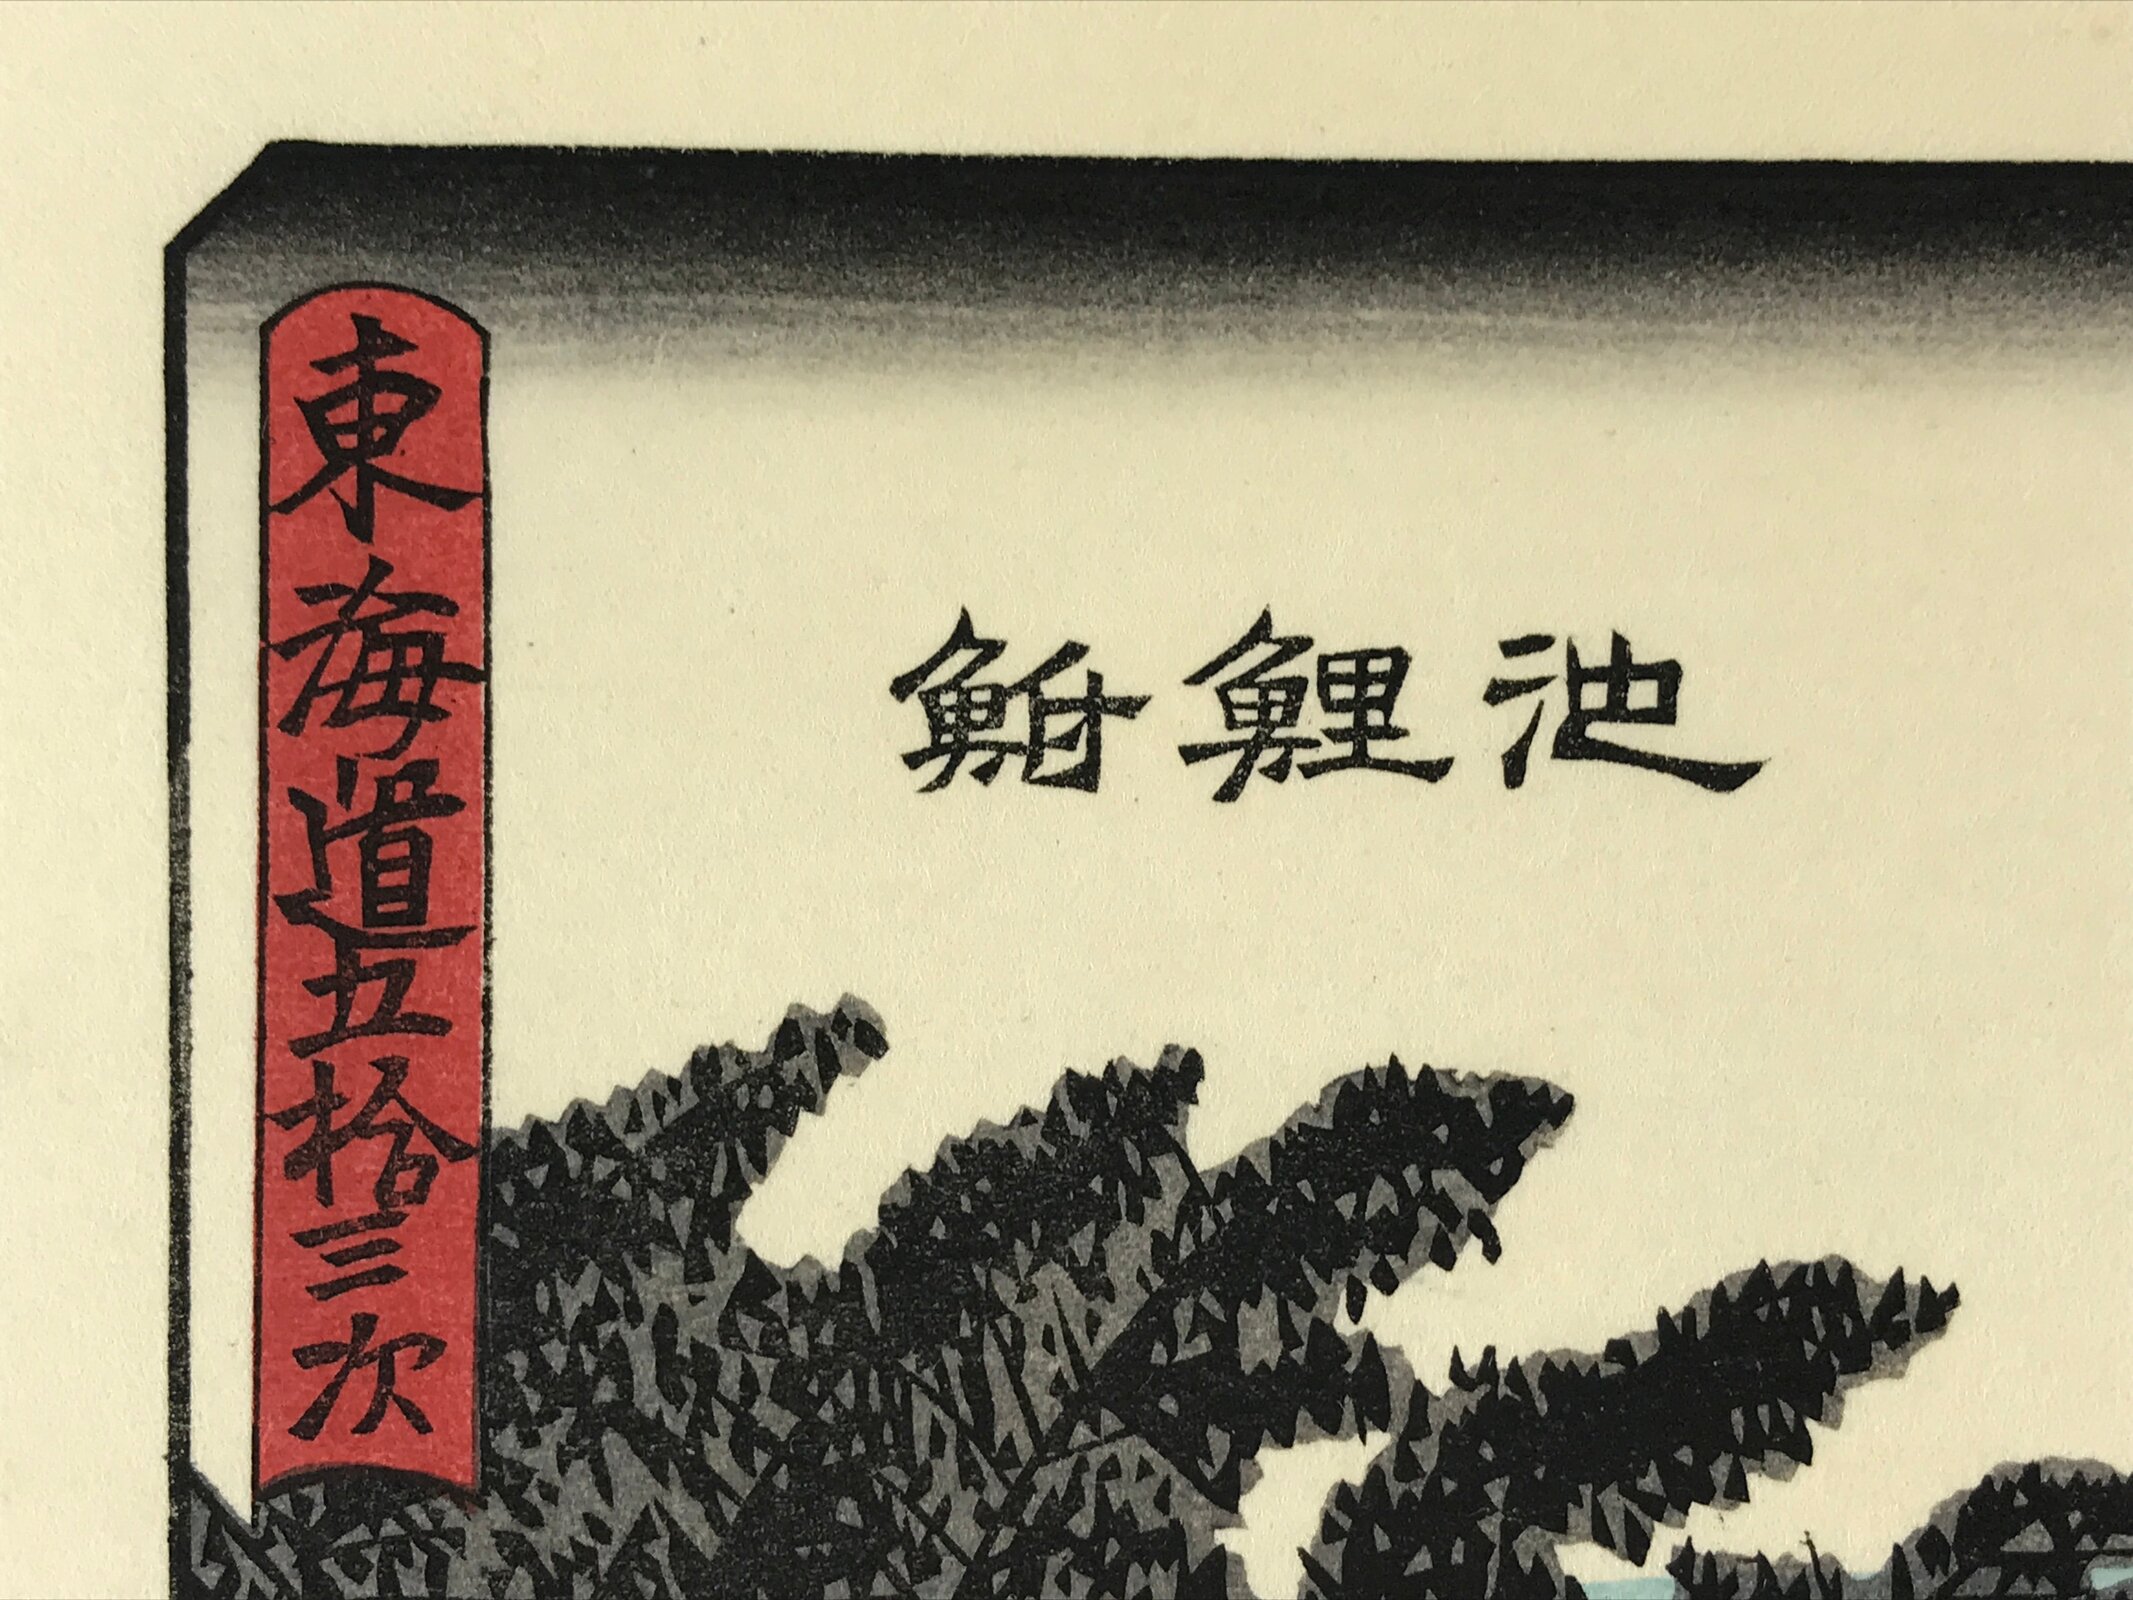 東海道五拾三次
池鯉鮒